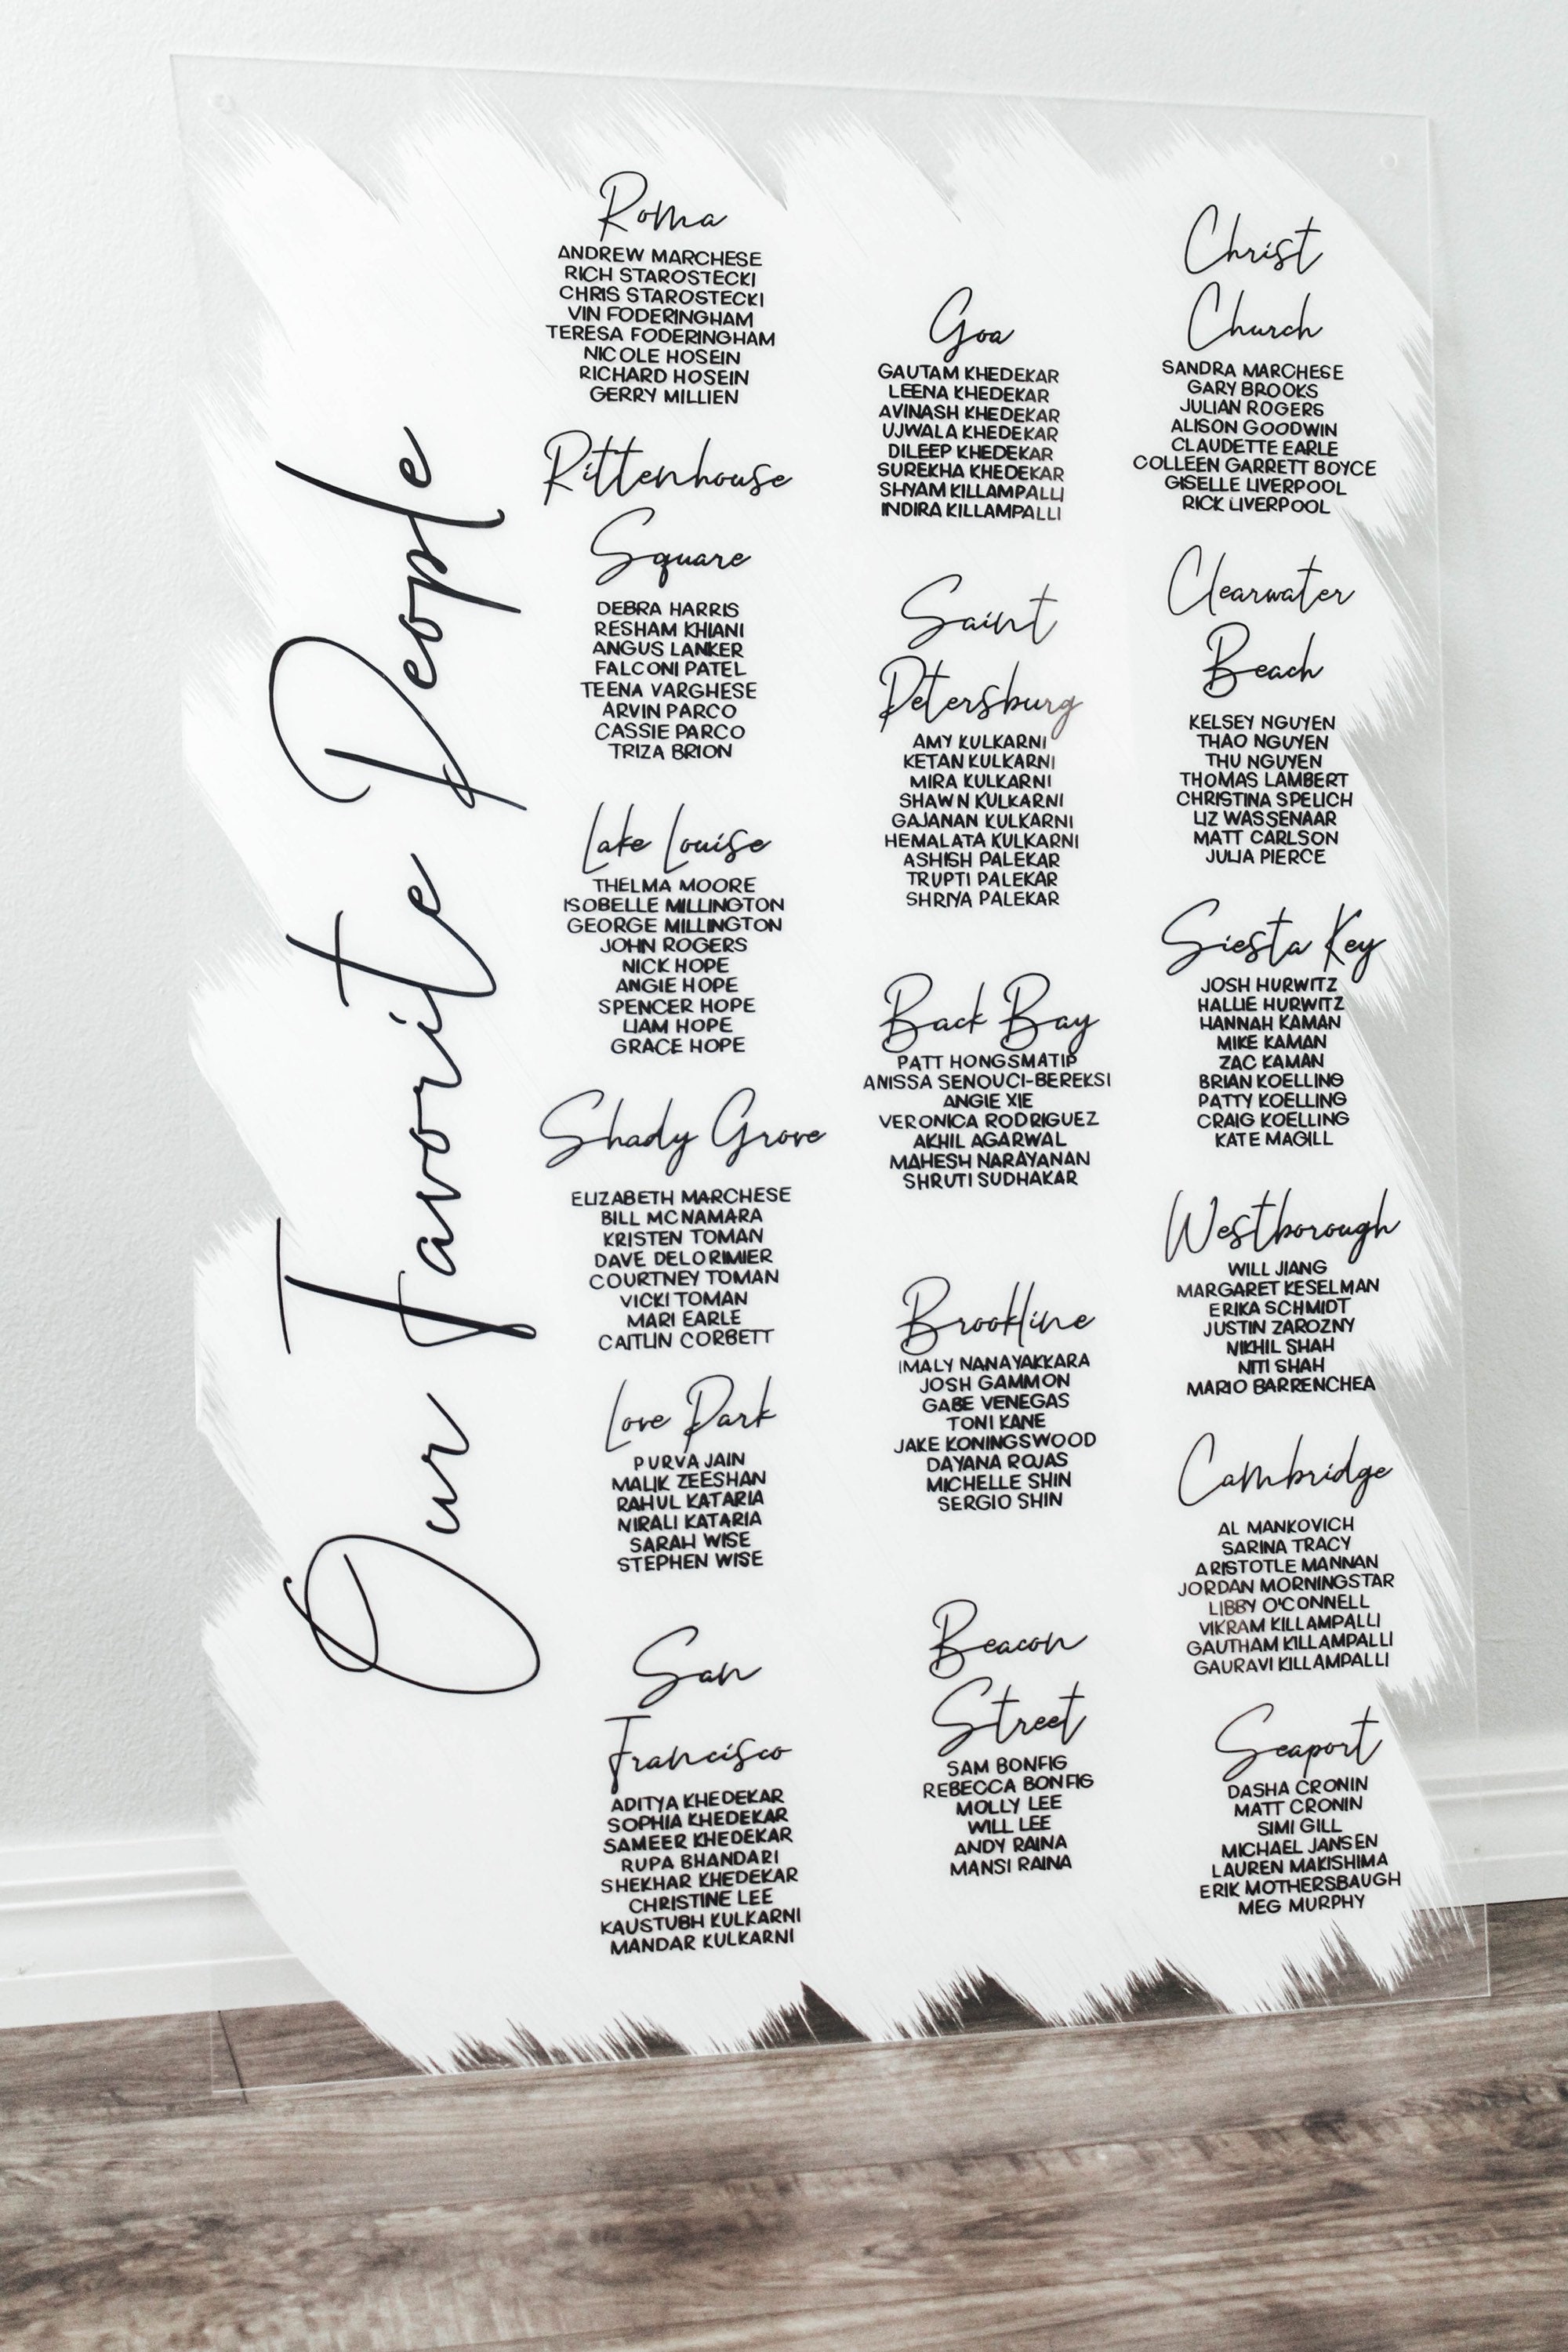 Our Favorite People
Roma
ANDREW MARCHESE
RICH STAROSTECKI
CHRIS STAROSTECKI
VIN FODERINGHAM
TERESA FODERINGHAM
NICOLE HOSEIN
RICHARD HOSEIN
GERRY MILLIEN
Rittenhouse
Square
DEBRA HARRIS
RESHAM KHIANI
ANGUS LANKER
FALCONI PATEL
TEENA VARGHESE
ARVIN PARCO
CASSIE PARCO
TRIZA BRION
Lake Louise
THELMA MOORE
ISOBELLE MILLINGTON
GEORGE MILLINGTON
JOHN ROGERS
NICK HOPE
ANGIE HOPE
SPENCER HOPE
LIAM HOPE
GRACE HOPE
Shady Grove
ELIZABETH MARCHESE
BILL MCNAMARA
KRISTEN TOMAN
DAVE DELORIMIER
COURTNEY TOMAN
VICKI TOMAN
MARI EARLE
CAITLIN CORBETT
Love Park
PURVA JAIN
MALIK ZEESHAN
RAHUL KATARIA
NIRALI KATARIA
SARAH WISE
STEPHEN WISE
San
Francisco
ADITYA KHEDEKAR
SOPHIA KHEDEKAR
SAMEER KHEDEKAR
RUPA BHANDARI
SHEKHAR KHEDEKAR
CHRISTINE LEE
KAUSTUBH KULKARNI
MANDAR KULKARNI
Goa
GAUTAM KHEDEKAR
LEENA KHEDEKAR
AVINASH KHEDEKAR
UJWALA KHEDEKAR
DILEEP KHEDEKAR
SUREKHA KHEDEKAR
SHYAM KILLAMPALLI
INDIRA KILLAMPALLI
Saint
Petersburg
AMY KULKARNI
KETAN KULKARNI
MIRA KULKARNI
SHAWN KULKARNI
GAJANAN KULKARNI
HEMALATA KULKARNI
ASHISH PALEKAR
TRUPTI PALEKAR
SHRIYA PALEKAR
Back Bay
PATT HONGSMATIP
ANISSA SENOUCI-BEREKSI
ANGIE XIE
VERONICA RODRIGUEZ
AKHIL AGARWAL
MAHESH NARAYANAN
SHRUTI SUDHAKAR
Brookline
IMALY NANAYAKKARA
JOSH GAMMON
GABE VENEGAS
TONI KANE
JAKE KONINGSWOOD
DAYANA ROJAS
MICHELLE SHIN
SERGIO SHIN
Beacon
Street
SAM BONFIG
REBECCA BONFIG
MOLLY LEE
WILL LEE
ANDY RAINA
MANSI RAINA
Christ
Church
SANDRA MARCHESE
GARY BROOKS
JULIAN ROGERS
ALISON GOODWIN
CLAUDETTE EARLE
COLLEEN GARRETT BOYCE
GISELLE LIVERPOOL
RICK LIVERPOOL
Clearwater
Beach
KELSEY NGUYEN
THAO NGUYEN
THU NGUYEN
THOMAS LAMBERT
CHRISTINA SPELICH
LIZ WASSENAAR
MATT CARLSON
JULIA PIERCE
Siesta Key
JOSH HURWITZ
HALLIE HURWITZ
HANNAH KAMAN
MIKE KAMAN
ZAC KAMAN
BRIAN KOELLING
PATTY KOELLING
CRAIG KOELLING
KATE MAGILL
Westborough
WILL JIANG
MARGARET KESELMAN
ERIKA SCHMIDT
JUSTIN ZAROZNY
NIKHIL SHAH
NITI SHAH
MARIO BARRENCHEA
Cambridge
AL MANKOVICH
SARINA TRACY
ARISTOTLE MANNAN
JORDAN MORNINGSTAR
LIBBY O'CONNELL
VIKRAM KILLAMPALLI
GAUTHAM KILLAMPALLI
GAURAVI KILLAMPALLI
Seaport
DASHA CRONIN
MATT CRONIN
SIMI GILL
MICHAEL JANSEN
LAUREN MAKISHIMA
ERIK MOTHERSBAUGH
MEG MURPHY